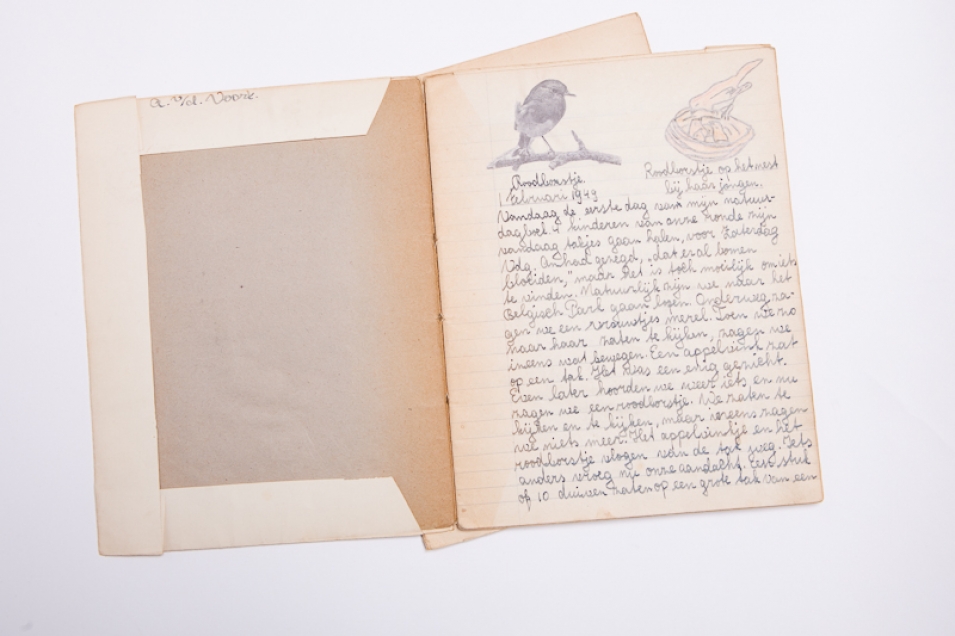 A. v/d. Voorde.
Roodborstje.
Roodborstje op het nest
bij haar jongen.
1 Februari 1949
Vandaag de eerste dag van mijn natuur-
dagboek. 4 kinderen van onze ronde zijn
vandaag takjes gaan halen, voor Zaterdag
had gezegd, "dat er al bomen
bloeiden," maar het is toch moeilijk om iets
te vinden. Natuurlijk zijn we naar het
Belgisch Park gaan lopen. Onderweg za-
gen we een vrouwtjes merel. Toen we zo
naar haar zaten te kijken, zagen we
ineens wat bewegen. Een appelvink zat
op een tak. Het was een enig gezicht.
Even later hoorden we weer iets en nu
zagen we een roodborstje. We zaten te
kijken en te kijken, maar ineens zagen
we niets meer. Het appelvinkje en het
roodborstje vlogen van de tak weg. Iets
anders vroeg nu onze aandacht. Een stuk
of 10 duiven zaten op een grote tak van een